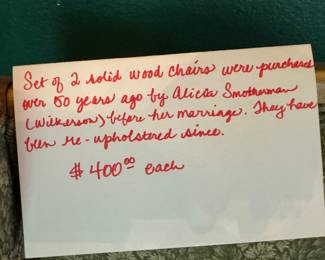 Set of 2 solid wood chairs were purchased
over 50 years ago by Alicia Smotherman
(Wilkerson) before her marriage. They have
been re-upholstered since.
$400⁰⁰ each